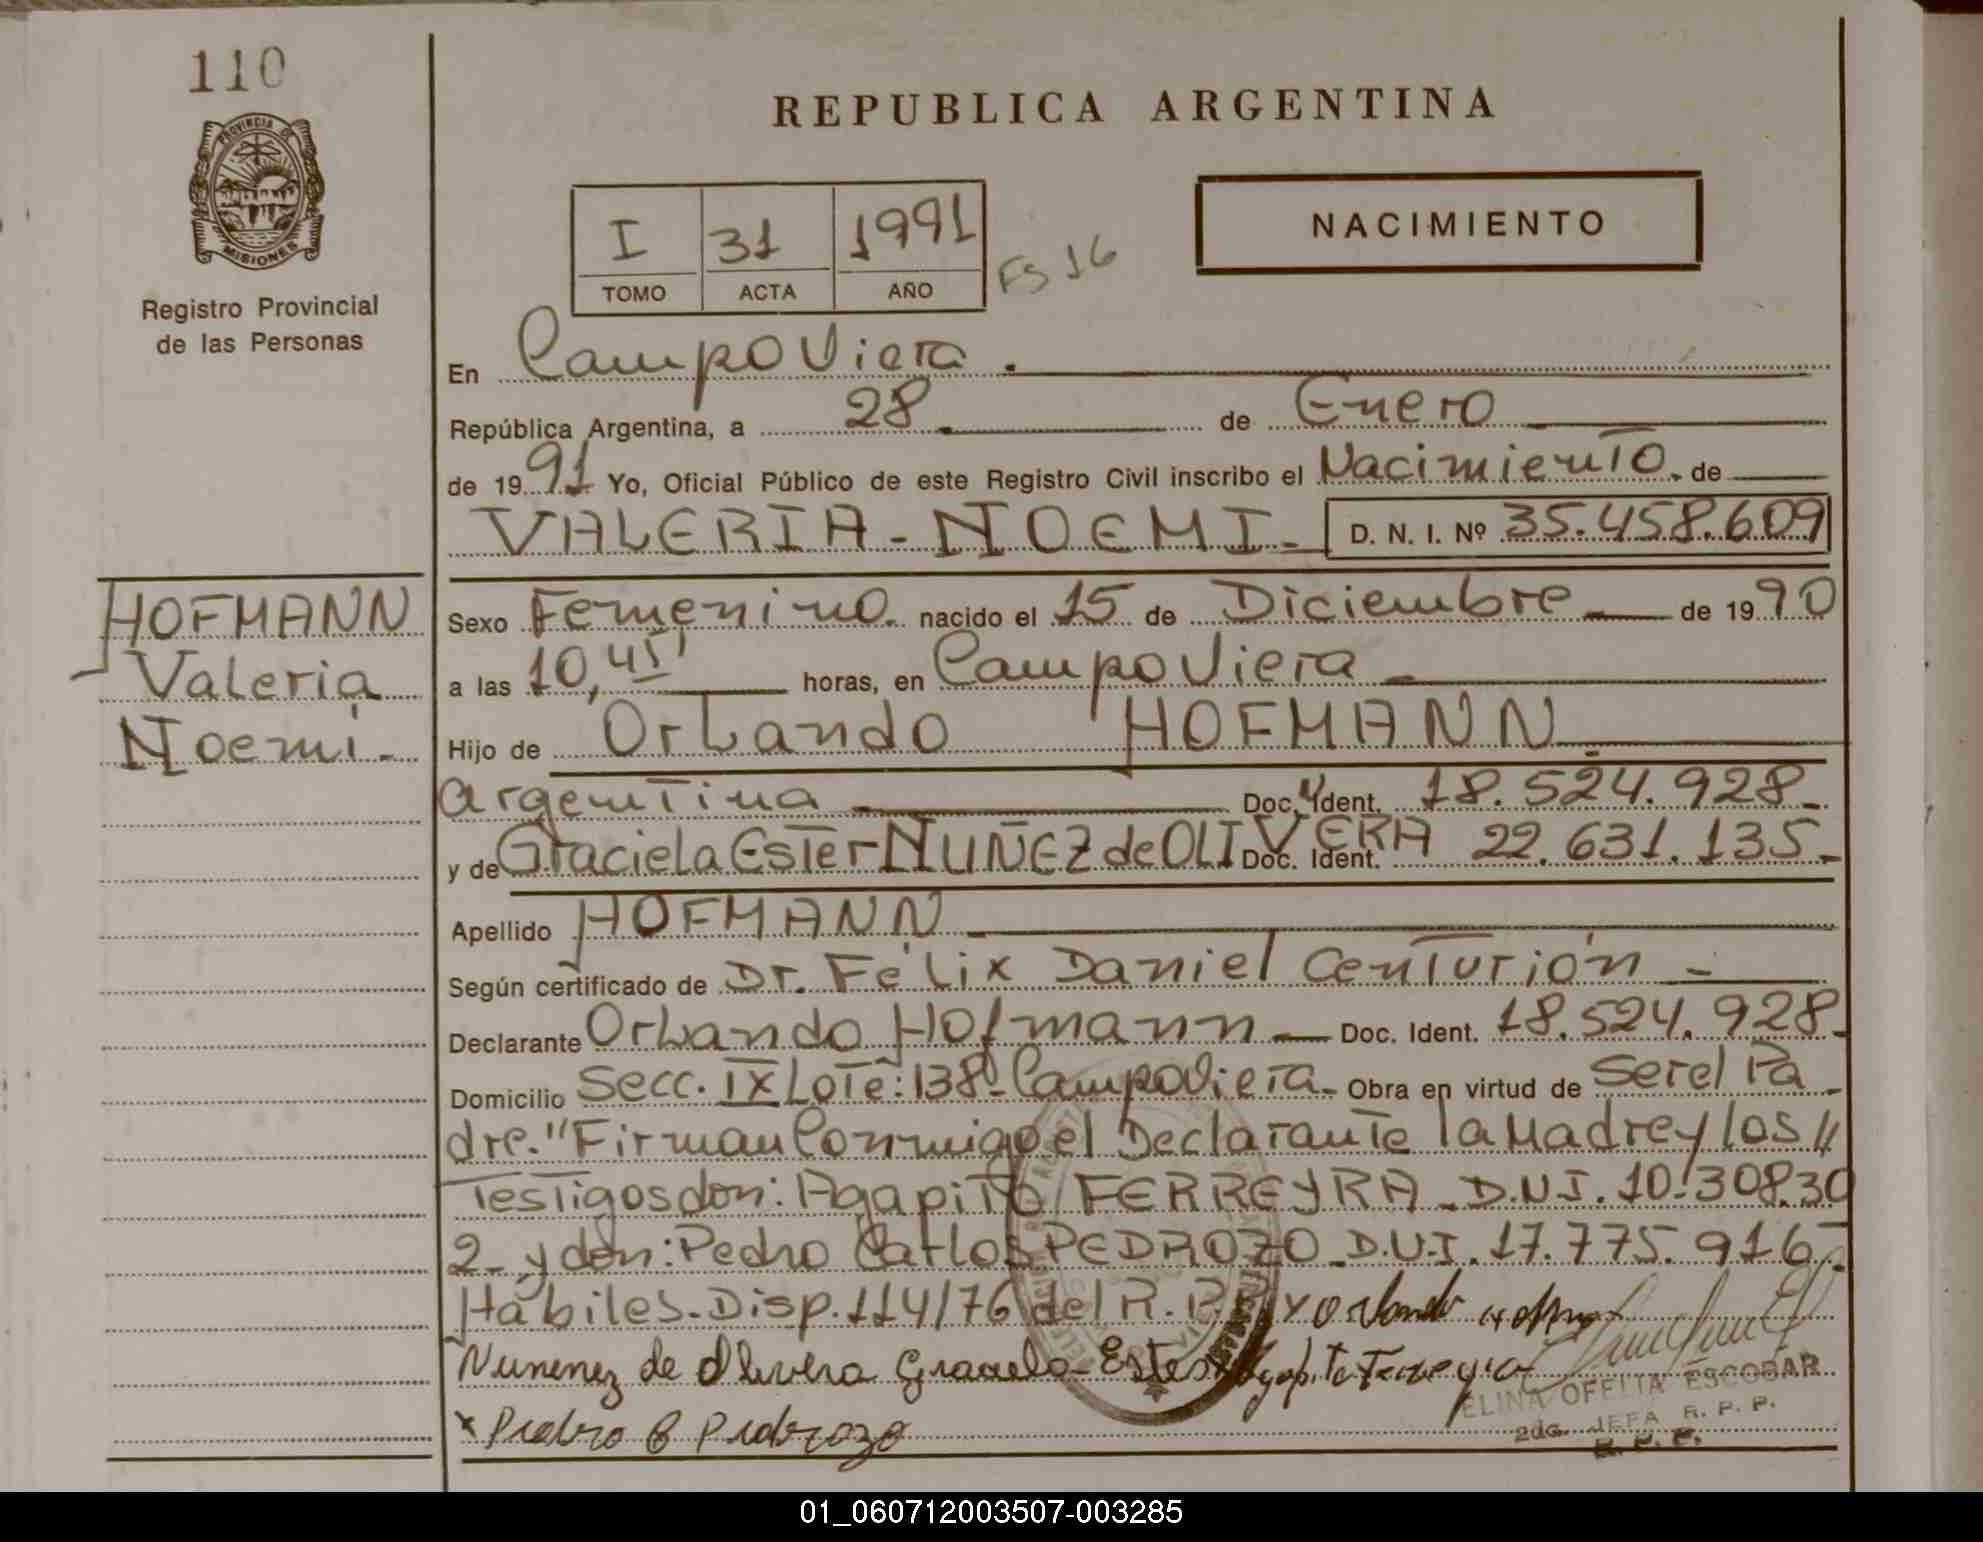 110
PROVINCIA DE
MISIONES
Registro Provincial
de las Personas
REPUBLICA ARGENTINA
I 31 1991
TOMO ACTA AÑO
FS 16
NACIMIENTO
En Campo Viera.
República Argentina, a 28 de Enero
de 1991 Yo, Oficial Público de este Registro Civil inscribo el Nacimiento de
VALERIA - NOEMI - D. N. I. Nº 35.458.609
HOFMANN
Valeria
Noemi -
Sexo Femenino nacido el 15 de Diciembre de 1990
a las 10,45' horas, en Campo Viera
Hijo de Orlando HOFMANN
Argentina Doc. Ident. 18.524.928-
y de Graciela Ester NUÑEZ de OLIVERA Doc. Ident. 22.631.135-
Apellido HOFMANN
Según certificado de Dr. Félix Daniel Centurión -
Declarante Orlando Hofmann - Doc. Ident. 18.524.928-
Domicilio Secc. IX Lote: 138 - Campo Viera - Obra en virtud de Ser el Pa
dre." Firman Conmigo el Declarante la Madre y los //
Testigos don: Agapito FERREYRA - D.N.I. 10.308.30
2- y don: Pedro Carlos PEDROZO - D.N.I. 17.775.916-
Hábiles. Disp. 114/76 del R.P.
Nunenez de Olivera Graciela - Ester x Agapito Ferreyra
x Pedro C Pedrozo
ELINA OFELIA ESCOBAR
2da. JEFA R. P. P.
R. P. P.
01_060712003507-003285